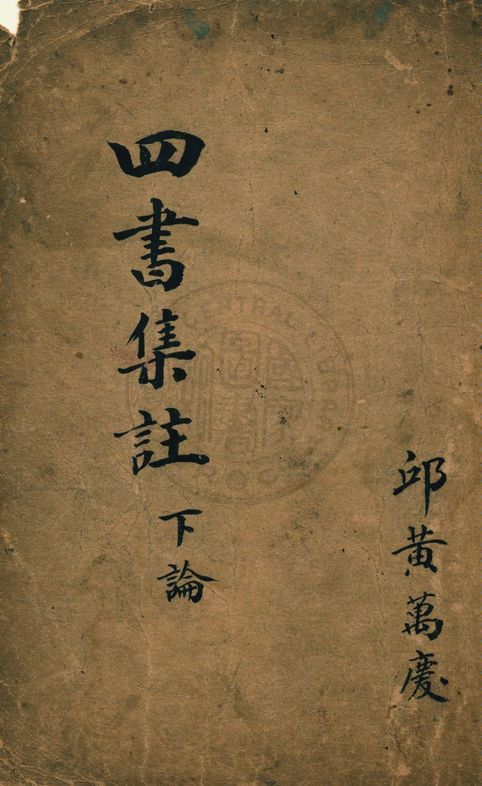 邱黃萬慶
四書集註
下論